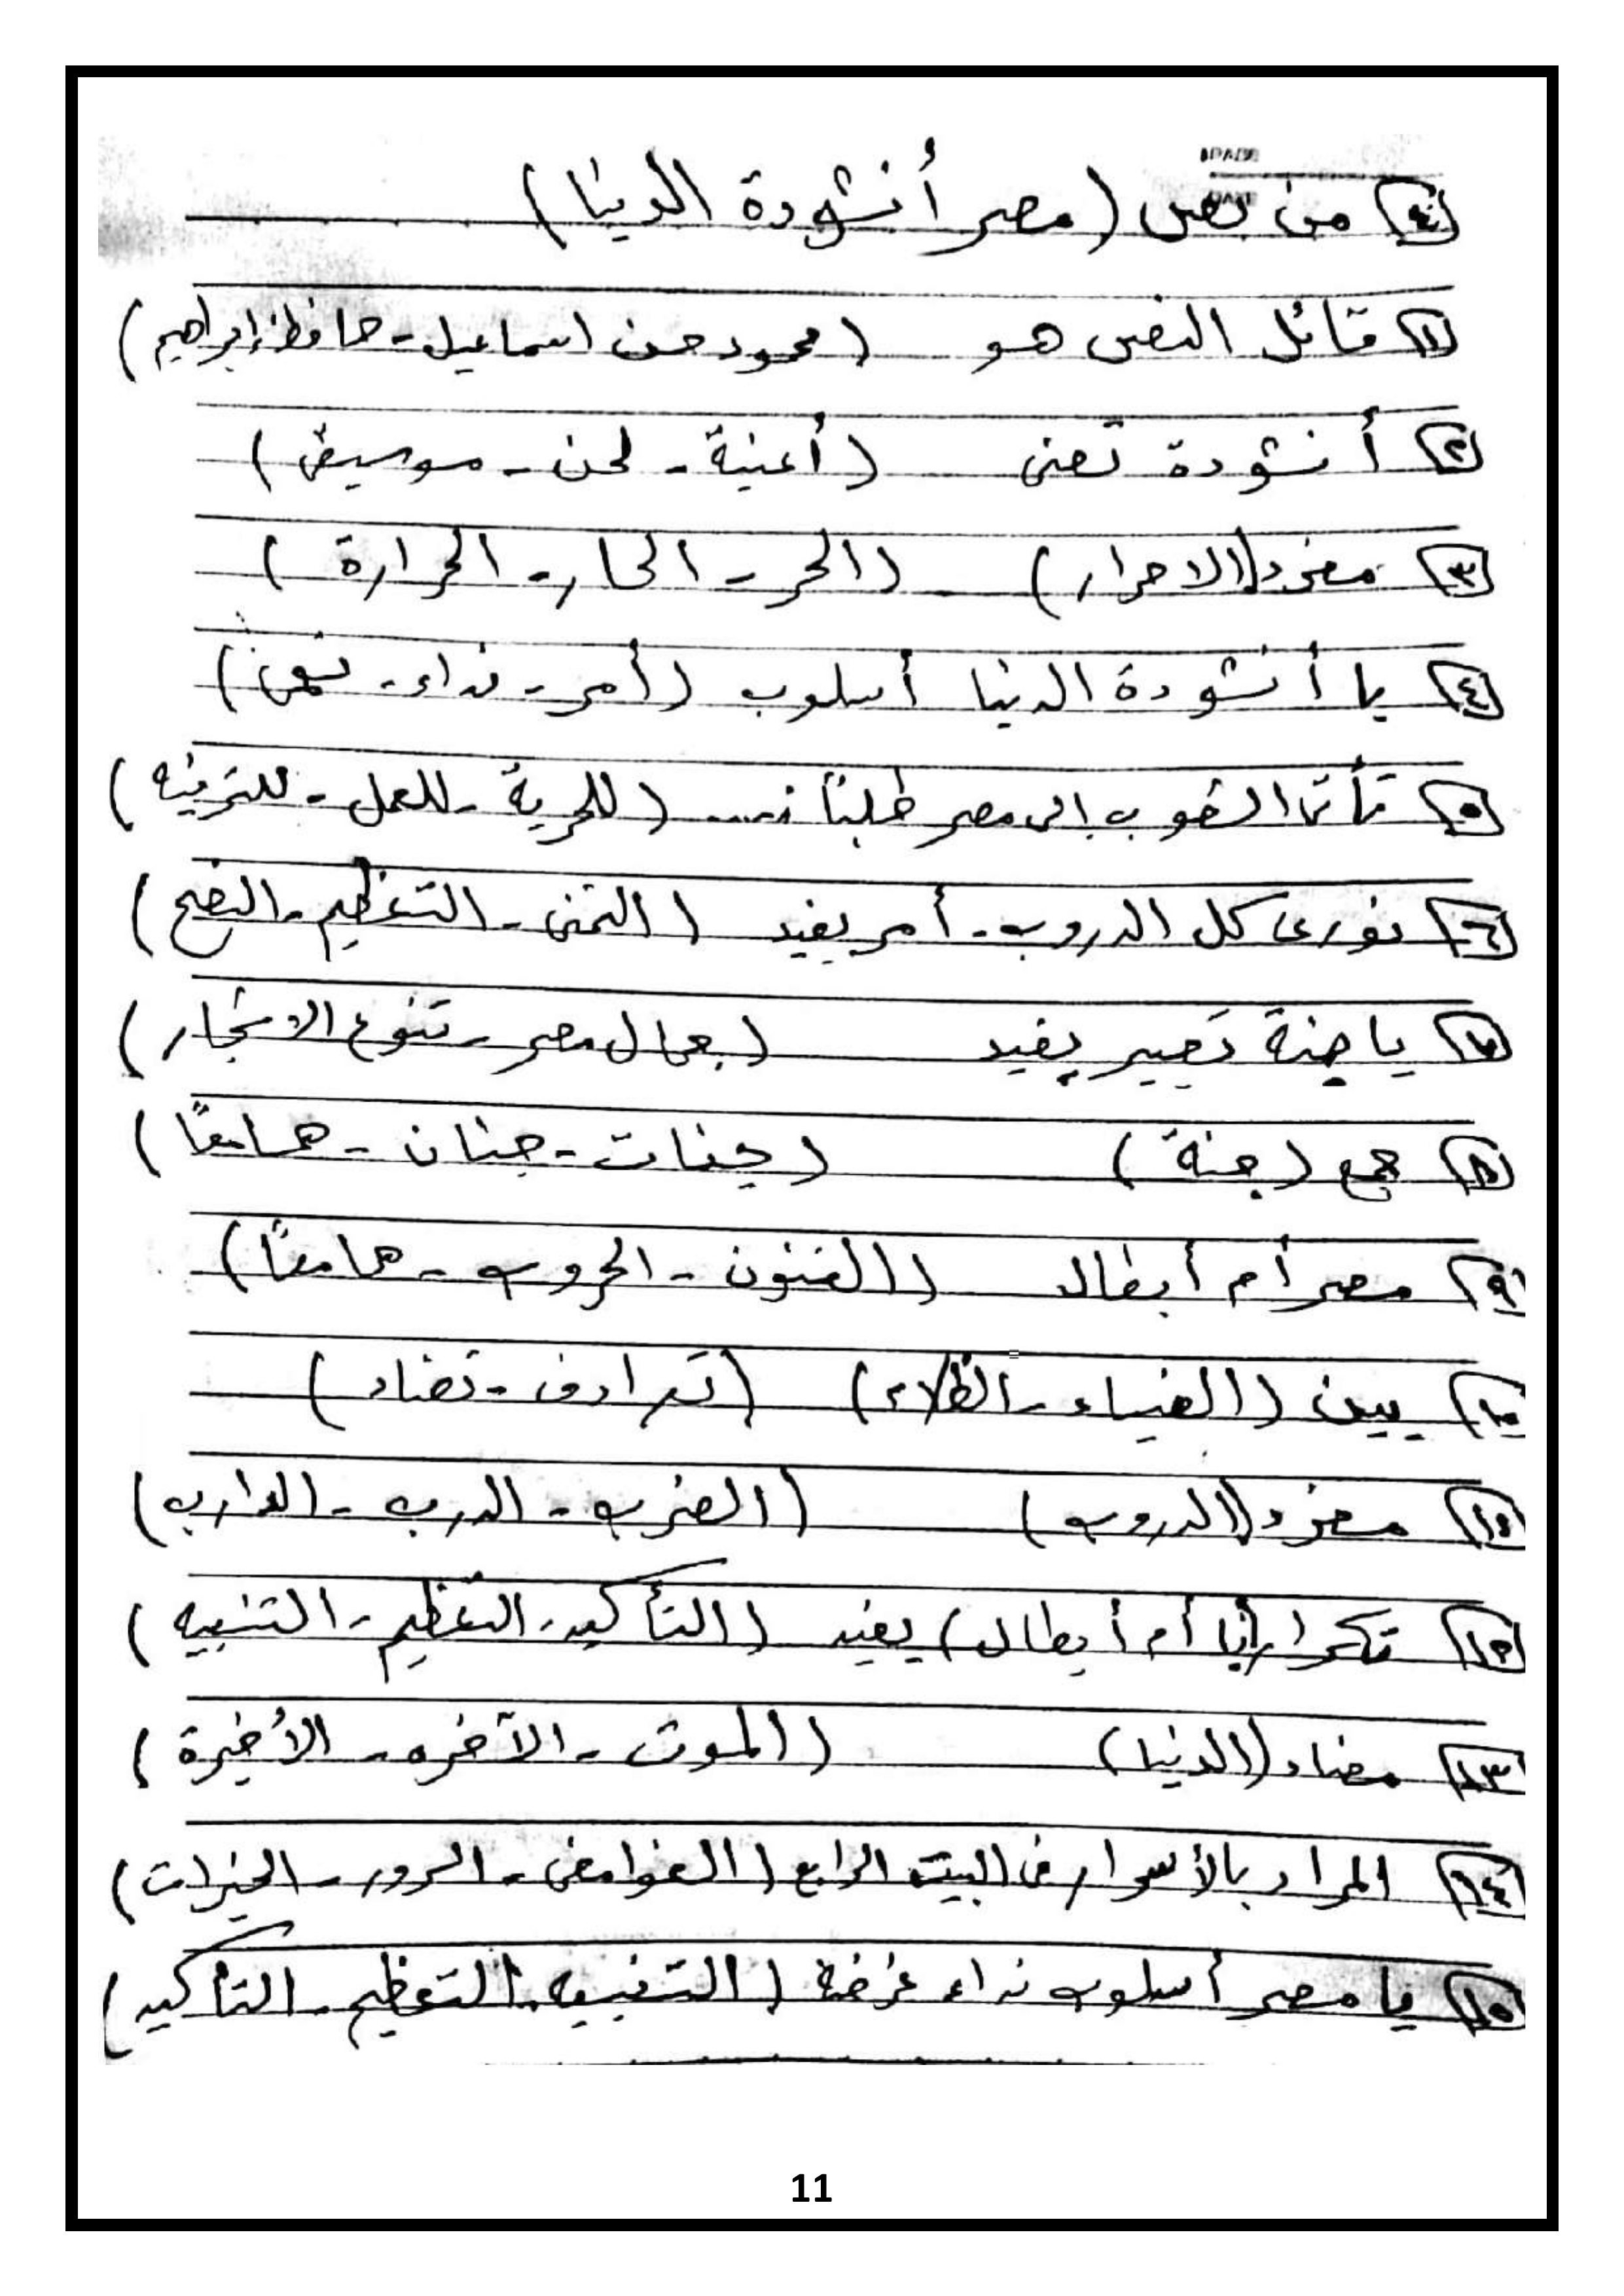 ٤) من نص (مصر أنشودة الدنيا)
١) قائل النص هو (محمود حسن اسماعيل - حافظ إبراهيم)
٢) أنشودة تعنى (أغنية - لحن - موسيقى)
٣) مفرد (الاحرار) (الحر - الحار - الحرارة)
٤) يا أنشودة الدنيا أسلوب (أمر - نداء - نهى)
٥) تأتى الشعوب إلى مصر طلبًا (للحرية - للعمل - للترفيه)
٦) نورى كل الدروب - أمر يفيد (التمنى - التعظيم - النصح)
٧) يا جنة تعبير يفيد (جمال مصر - تنوع الاشجار)
٨) جمع (جنة) (جنات - جنان - هما معًا)
٩) مصر أم أبطال (الفنون - الحروب - هما معًا)
١٠) بين (الضياء - الظلام) (ترادف - تضاد)
١١) مفرد (الدروب) (الضرب - الدرب - الدارب)
١٢) تكرار (يا أم أبطال) يفيد (التأكيد - التعظيم - التنبيه)
١٣) مضاد (الدنيا) (الموت - الآخره - الأخيرة)
١٤) المراد بالأسرار فى البيت الرابع (الغوامض - السرور - الخيرات)
١٥) يا مصر أسلوب نداء غرضة (التنبيه - التعظيم - التأكيد)
11